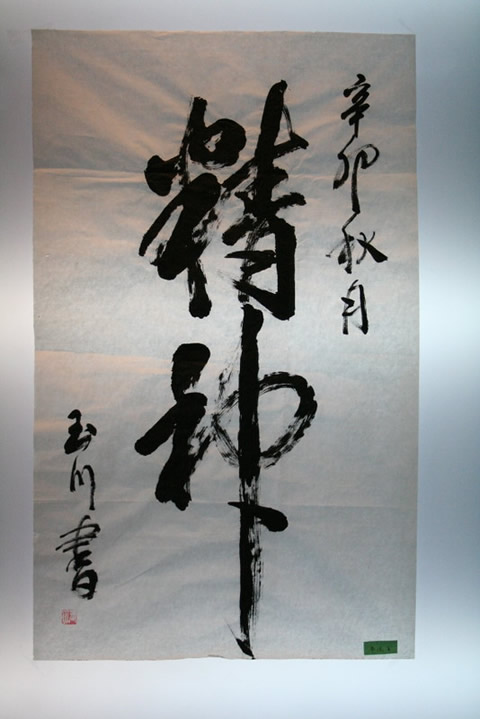 辛卯秋月
精神
玉川書